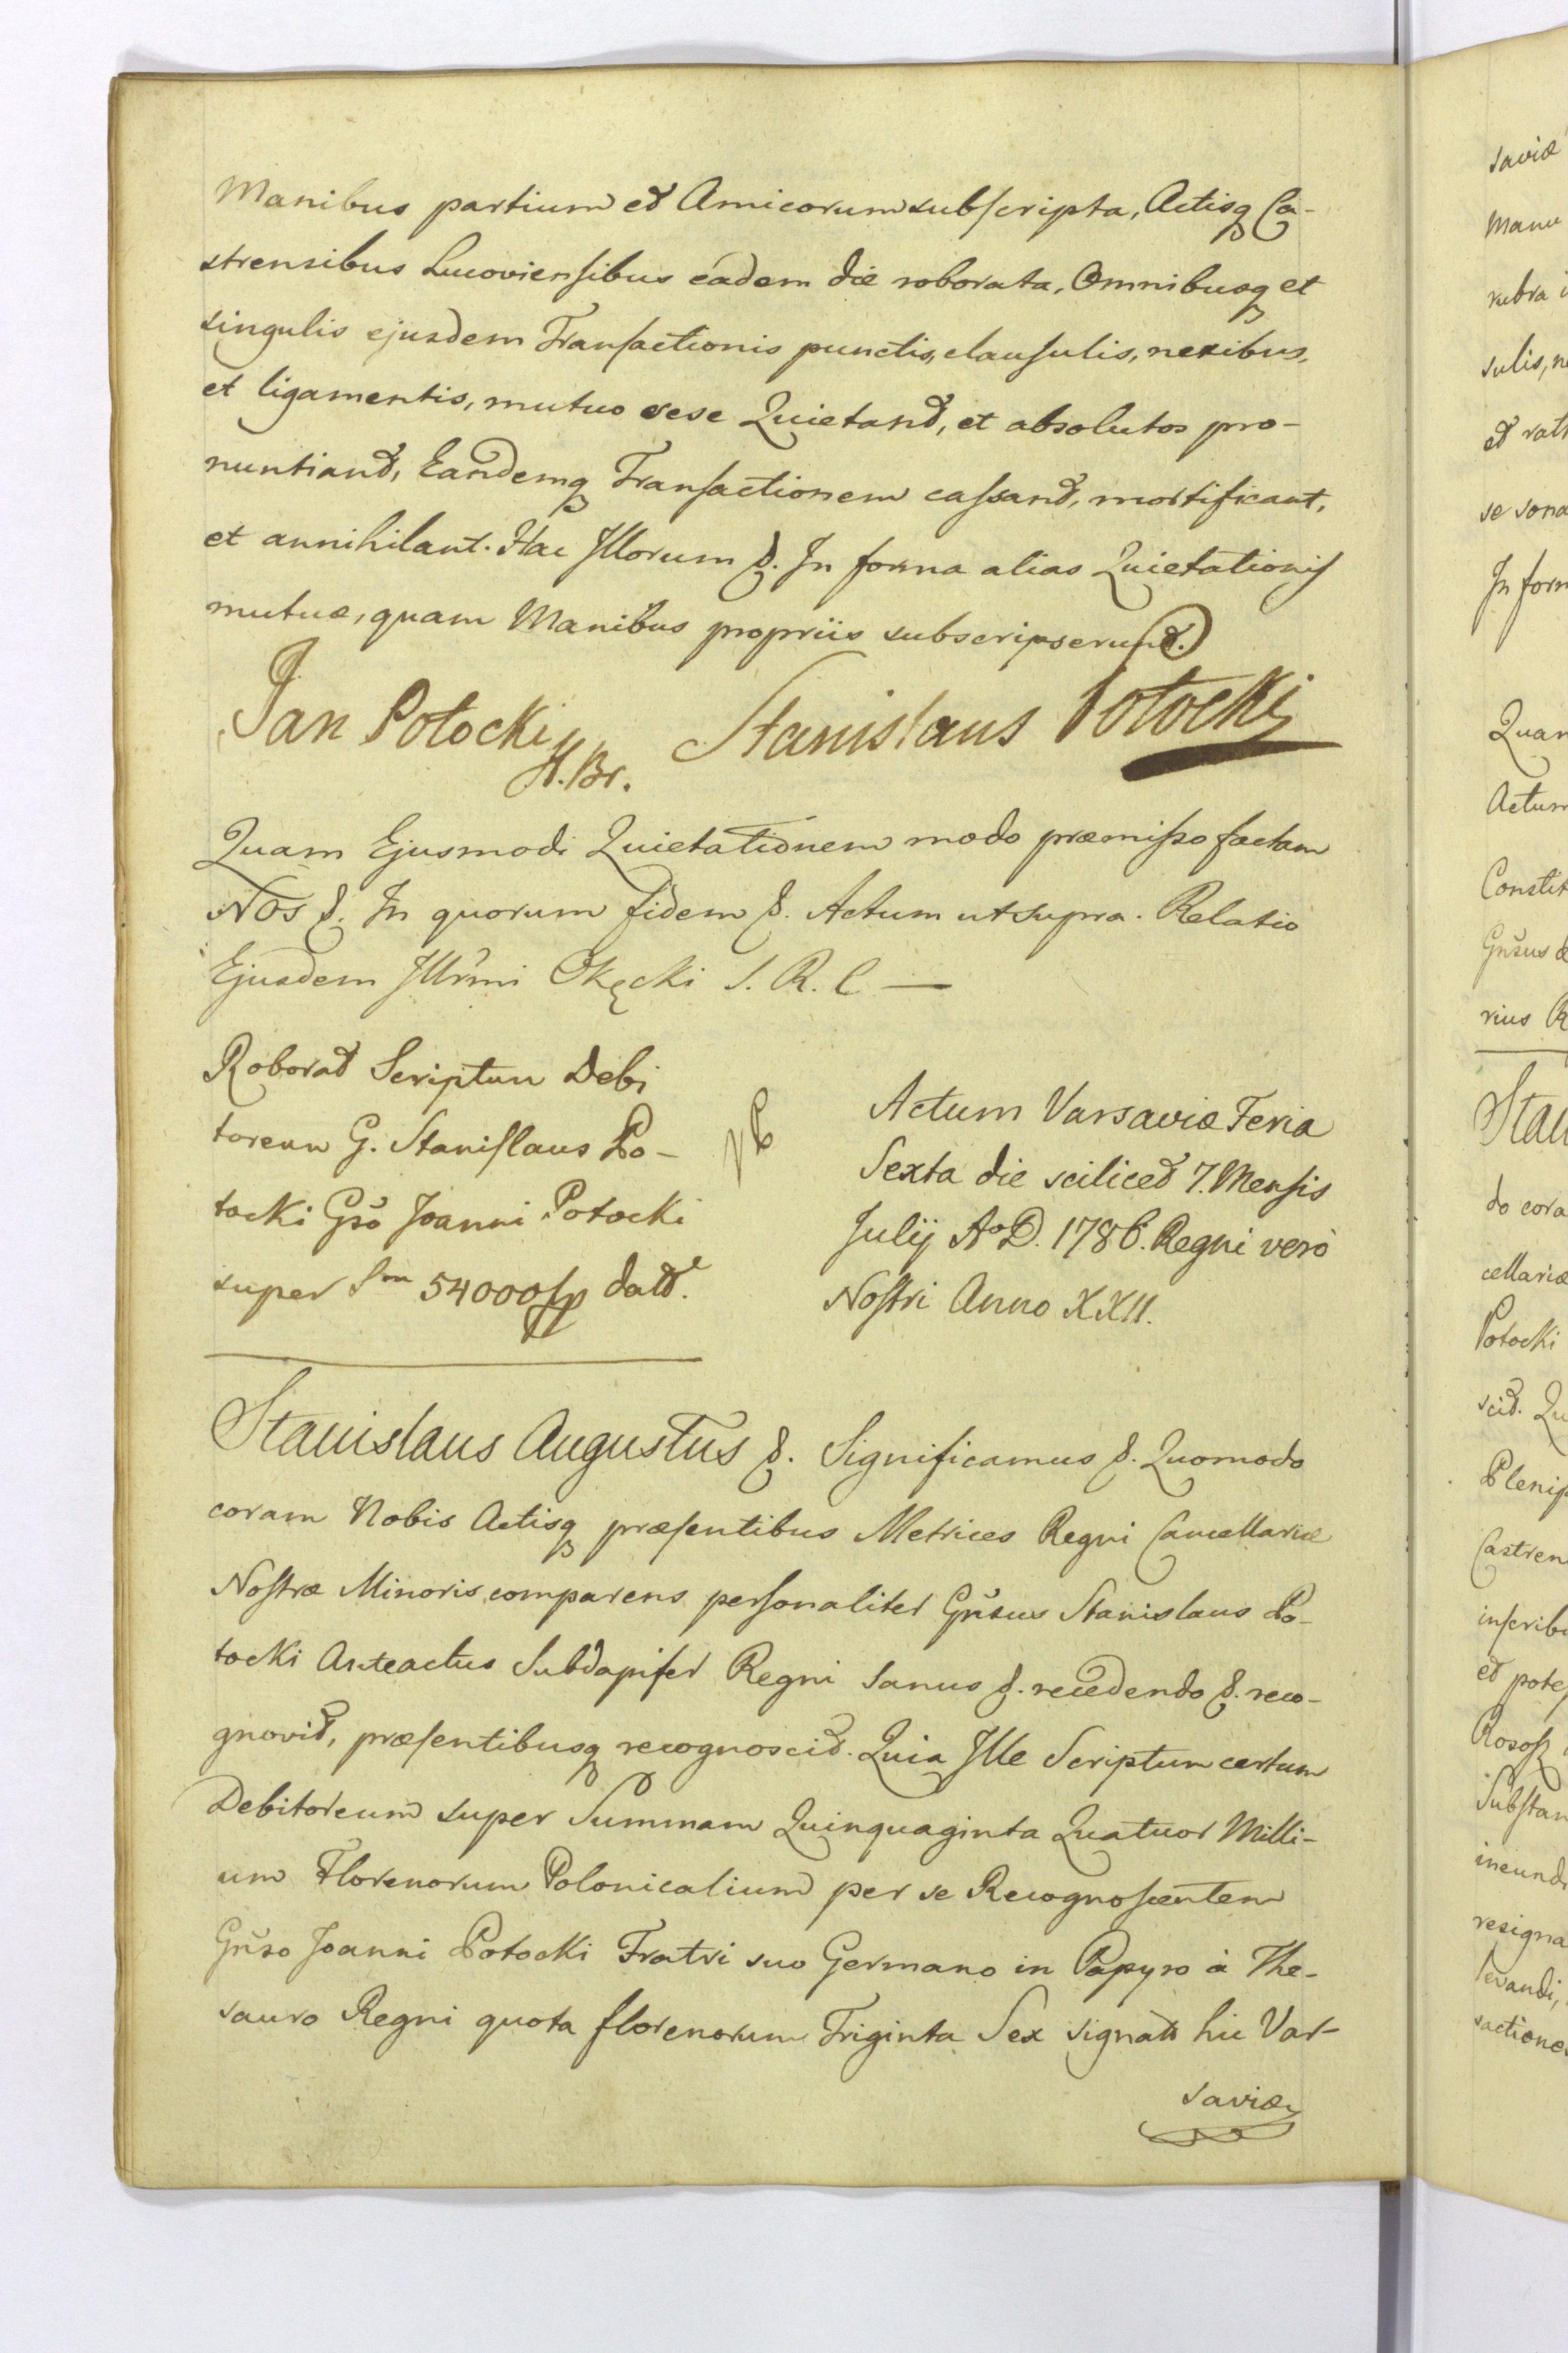 Manibus partium et Amicorum subscripta, Actisq Ca-
strensibus Lucoviensibus eadem die roborata, Omnibusq et
singulis ejusdem Transactionis punctis, clausulis, nexibus,
et ligamentis, mutuo sese Quietant, et absolutos pro-
nuntiant, Eandemq Transactionem cassant, mortificant,
et annihilant. Hac Illorum &. In forma alias Quietationis
mutuæ, quam Manibus propriis subscripserunt.
Jan Potocki Stanislaus Potocki
H. Br.
Quam Ejusmodi Quietationem modo præmisso factam
Nos &. In quorum fidem &. Actum ut supra. Relatio
Ejusdem Illrmi Okęcki S. R. C —
Roborat Scriptum Debi
toreum G. Stanislaus Po-
tocki Gso Joanni Potocki
super Sm 54000 fp dat.
Actum Varsaviæ Feria
Sexta die scilicet 7. Mensis
Julij Ao D. 1786. Regni verò
Nostri Anno XXII.
Stanislaus Augustus &. Significamus &. Quomodo
coram Nobis Actisq præsentibus Metrices Regni Cancellariæ
Nostræ Minoris comparens personaliter Gnsus Stanislaus Po-
tocki Anteactus Subdapifer Regni sanus &. recedendo &. reco-
gnovit, præsentibusq recognoscit. Quia Ille Scriptum certum
Debitoreum super Summam Quinquaginta Quatuor Milli-
um Florenorum Polonicalium per se Recognoscentem
Gnso Joanni Potocki Fratri suo Germano in Papyro à The-
sauro Regni quota florenorum Triginta Sex signato hic Var-
saviæ
saviæ
manu
rubra
sulis,
et
se
In
Quam
Actum
Gnsus
rius
do
cellariæ
Potocki
scit.
et